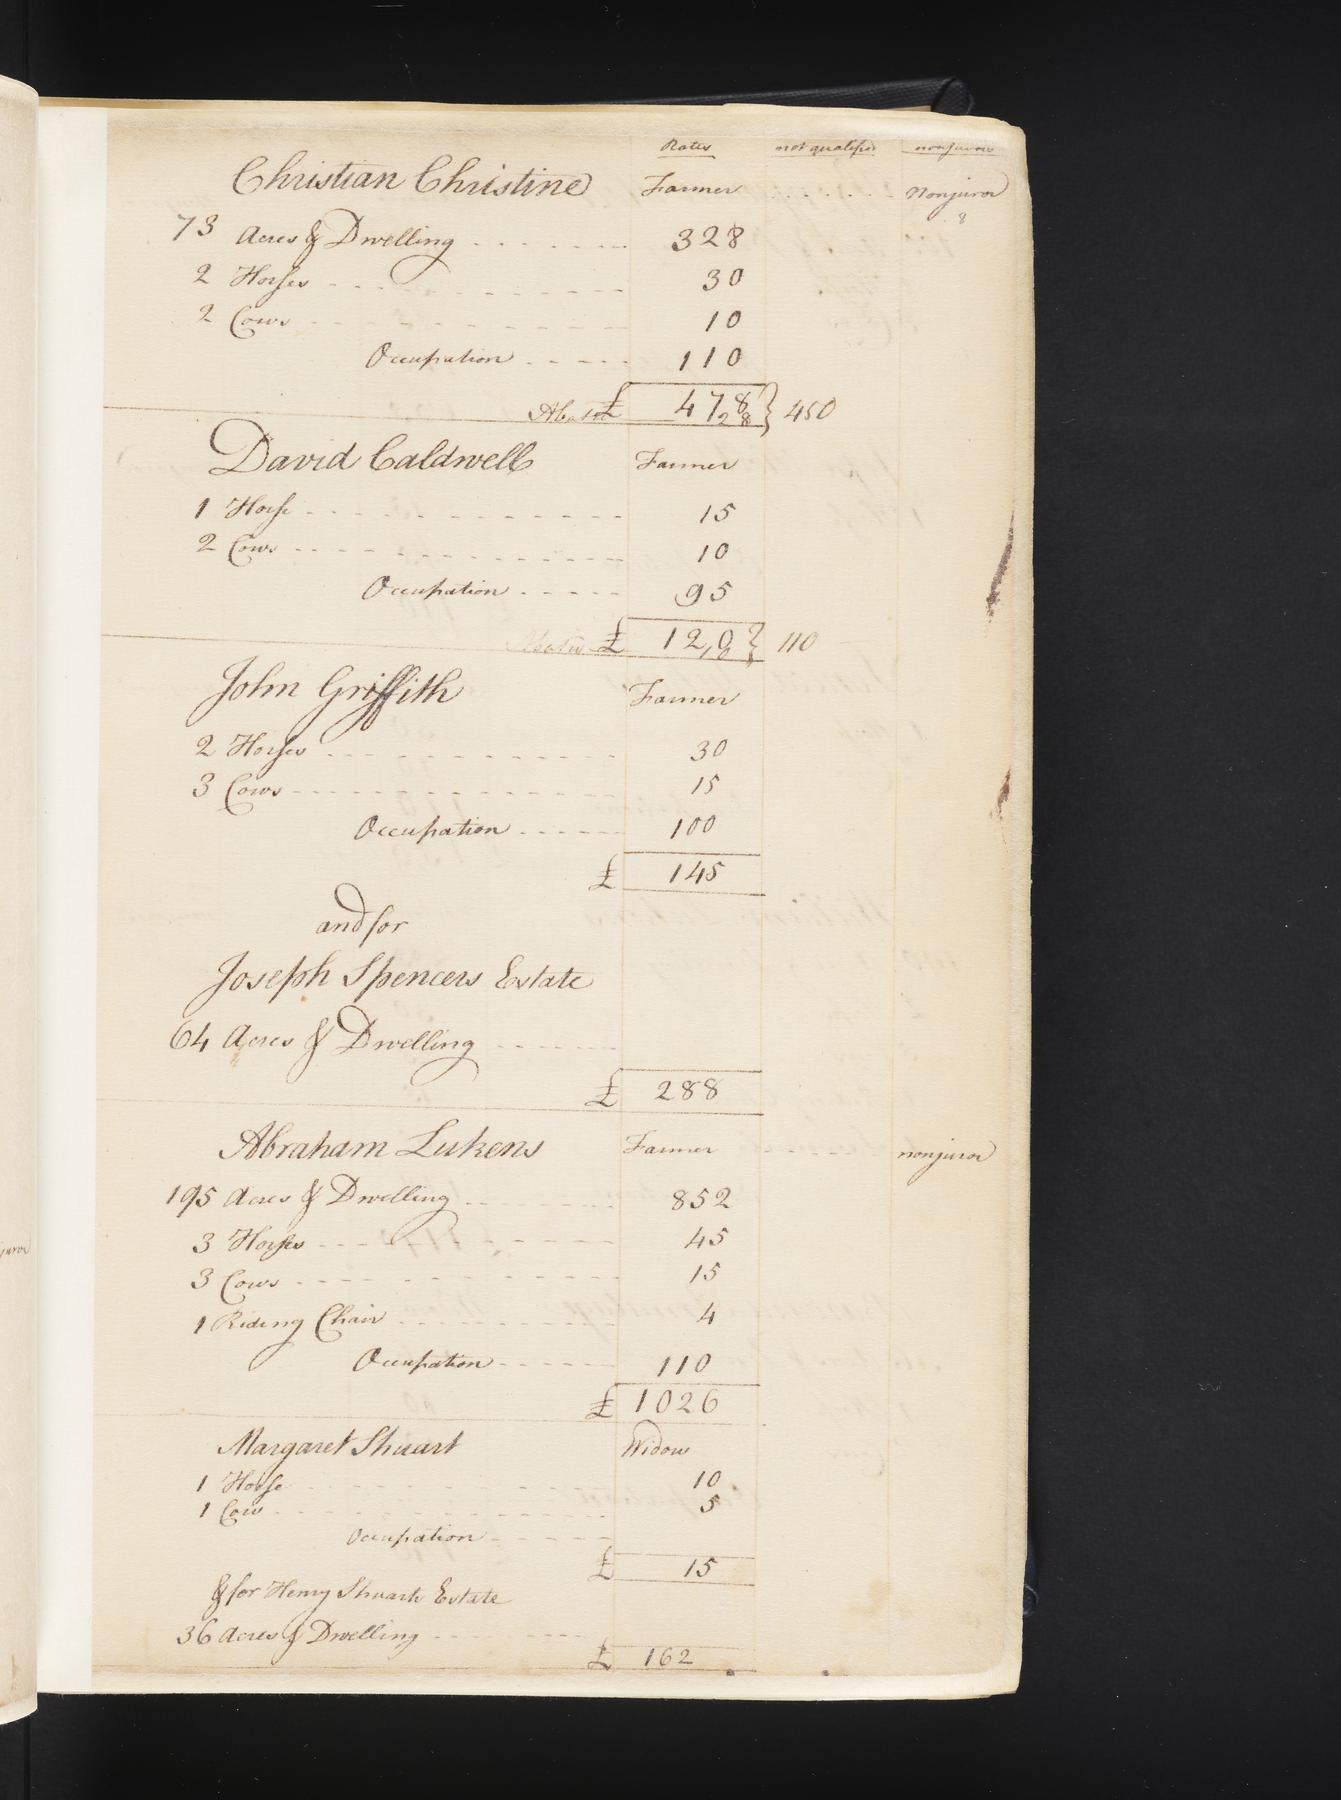 Rates not qualified nonjurors
Christian Christine Farmer Nonjuror
8
73 Acres & Dwelling 328
2 Horses 30
2 Cows 10
Occupation 110
£ 478 } 450
Abated 28
David Caldwell Farmer
1 Horse 15
2 Cows 10
Occupation 95
Abated £ 120 } 110
10
John Griffith Farmer
2 Horses 30
3 Cows 15
Occupation 100
£ 145
and for
Joseph Spencers Estate
64 Acres & Dwelling
£ 288
Abraham Lukens Farmer nonjuror
195 Acres & Dwelling 852
3 Horses 45
3 Cows 15
1 Riding Chair 4
Occupation 110
£ 1026
Margaret Stuart Widow
1 Horse 10
1 Cow 5
Occupation
£ 15
& for Henry Stuarts Estate
36 Acres & Dwelling
£ 162